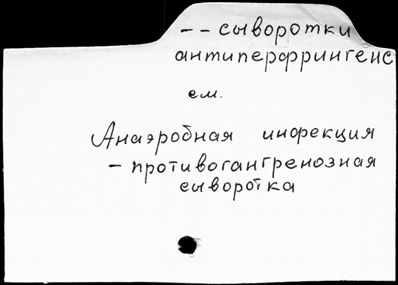 -- сыворотки
антиперфрингенс
см.
Анаэробная инфекция
- противогангренозная
сыворотка